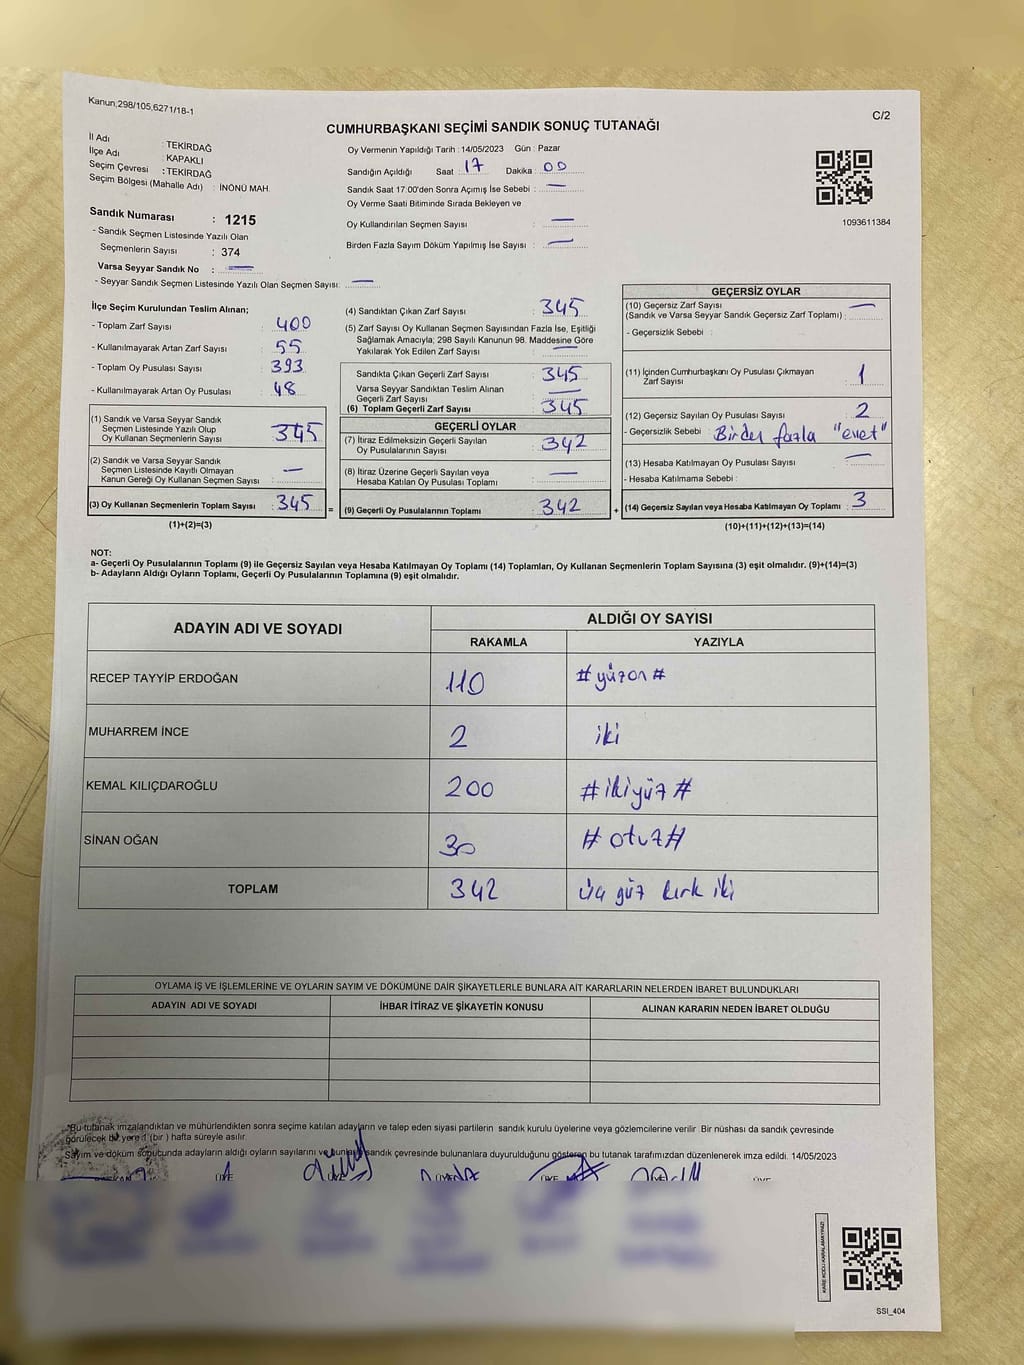 Kanun,298/105,6271/18-1
C/2
CUMHURBAŞKANI SEÇİMİ SANDIK SONUÇ TUTANAĞI
İl Adı : TEKİRDAĞ
İlçe Adı : KAPAKLI
Seçim Çevresi : TEKİRDAĞ
Seçim Bölgesi (Mahalle Adı) : İNÖNÜ MAH.
Sandık Numarası : 1215
- Sandık Seçmen Listesinde Yazılı Olan
Seçmenlerin Sayısı : 374
Varsa Seyyar Sandık No : —
- Seyyar Sandık Seçmen Listesinde Yazılı Olan Seçmen Sayısı: —
Oy Vermenin Yapıldığı Tarih : 14/05/2023 Gün : Pazar
Sandığın Açıldığı Saat : 17 Dakika : 00
Sandık Saat 17:00'den Sonra Açımış İse Sebebi : —
Oy Verme Saati Bitiminde Sırada Bekleyen ve
Oy Kullandırılan Seçmen Sayısı : —
Birden Fazla Sayım Döküm Yapılmış İse Sayısı : —
1093611384
İlçe Seçim Kurulundan Teslim Alınan;
- Toplam Zarf Sayısı : 400
- Kullanılmayarak Artan Zarf Sayısı : 55
- Toplam Oy Pusulası Sayısı : 393
- Kullanılmayarak Artan Oy Pusulası : 48
(1) Sandık ve Varsa Seyyar Sandık
Seçmen Listesinde Yazılı Olup
Oy Kullanan Seçmenlerin Sayısı : 345
(2) Sandık ve Varsa Seyyar Sandık
Seçmen Listesinde Kayıtlı Olmayan
Kanun Gereği Oy Kullanan Seçmen Sayısı : —
(3) Oy Kullanan Seçmenlerin Toplam Sayısı : 345 =
(1)+(2)=(3)
(4) Sandıktan Çıkan Zarf Sayısı : 345
(5) Zarf Sayısı Oy Kullanan Seçmen Sayısından Fazla İse, Eşitliği
Sağlamak Amacıyla; 298 Sayılı Kanunun 98. Maddesine Göre
Yakılarak Yok Edilen Zarf Sayısı : —
Sandıkta Çıkan Geçerli Zarf Sayısı : 345
Varsa Seyyar Sandıktan Teslim Alınan
Geçerli Zarf Sayısı : —
(6) Toplam Geçerli Zarf Sayısı : 345
GEÇERLİ OYLAR
(7) İtiraz Edilmeksizin Geçerli Sayılan
Oy Pusulalarının Sayısı : 342
(8) İtiraz Üzerine Geçerli Sayılan veya
Hesaba Katılan Oy Pusulası Toplamı : —
(9) Geçerli Oy Pusulalarının Toplamı : 342 +
GEÇERSİZ OYLAR
(10) Geçersiz Zarf Sayısı
(Sandık ve Varsa Seyyar Sandık Geçersiz Zarf Toplamı) : —
- Geçersizlik Sebebi :
(11) İçinden Cumhurbaşkanı Oy Pusulası Çıkmayan
Zarf Sayısı : 1
(12) Geçersiz Sayılan Oy Pusulası Sayısı : 2
- Geçersizlik Sebebi : Birden fazla "evet"
(13) Hesaba Katılmayan Oy Pusulası Sayısı : —
- Hesaba Katılmama Sebebi :
(14) Geçersiz Sayılan veya Hesaba Katılmayan Oy Toplamı : 3
(10)+(11)+(12)+(13)=(14)
NOT:
a- Geçerli Oy Pusulalarının Toplamı (9) ile Geçersiz Sayılan veya Hesaba Katılmayan Oy Toplamı (14) Toplamları, Oy Kullanan Seçmenlerin Toplam Sayısına (3) eşit olmalıdır. (9)+(14)=(3)
b- Adayların Aldığı Oyların Toplamı, Geçerli Oy Pusulalarının Toplamına (9) eşit olmalıdır.
ADAYIN ADI VE SOYADI
ALDIĞI OY SAYISI
RAKAMLA YAZIYLA
RECEP TAYYİP ERDOĞAN 110 #yüzon#
MUHARREM İNCE 2 iki
KEMAL KILIÇDAROĞLU 200 #ikiyüz#
SİNAN OĞAN 30 #otuz#
TOPLAM 342 üç yüz kırk iki
OYLAMA İŞ VE İŞLEMLERİNE VE OYLARIN SAYIM VE DÖKÜMÜNE DAİR ŞİKAYETLERLE BUNLARA AİT KARARLARIN NELERDEN İBARET BULUNDUKLARI
ADAYIN ADI VE SOYADI İHBAR İTİRAZ VE ŞİKAYETİN KONUSU ALINAN KARARIN NEDEN İBARET OLDUĞU
*Bu tutanak imzalandıktan ve mühürlendikten sonra seçime katılan adayların ve talep eden siyasi partilerin sandık kurulu üyelerine veya gözlemcilerine verilir Bir nüshası da sandık çevresinde
görülecek bir yere 1 (bir ) hafta süreyle asılır.
*Sayım ve döküm sonucunda adayların aldığı oyların sayılarını ve bunların sandık çevresinde bulunanlara duyurulduğunu gösteren bu tutanak tarafımızdan düzenlenerek imza edildi. 14/05/2023
BAŞKAN ÜYE ÜYE ÜYE ÜYE ÜYE ÜYE
KARE KODU KARALAMAYINIZ!
SSI_404